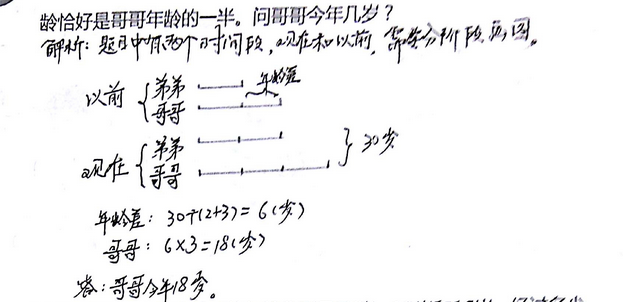 龄恰好是哥哥年龄的一半。问哥哥今年几岁？
解析：题目中有两个时间段，现在和以前，需要分阶段画图。
以前 { 弟弟 年龄差
哥哥
现在 { 弟弟 } 30岁
哥哥
年龄差：30÷(2+3)=6(岁)
哥哥：6×3=18(岁)
答：哥哥今年18岁。